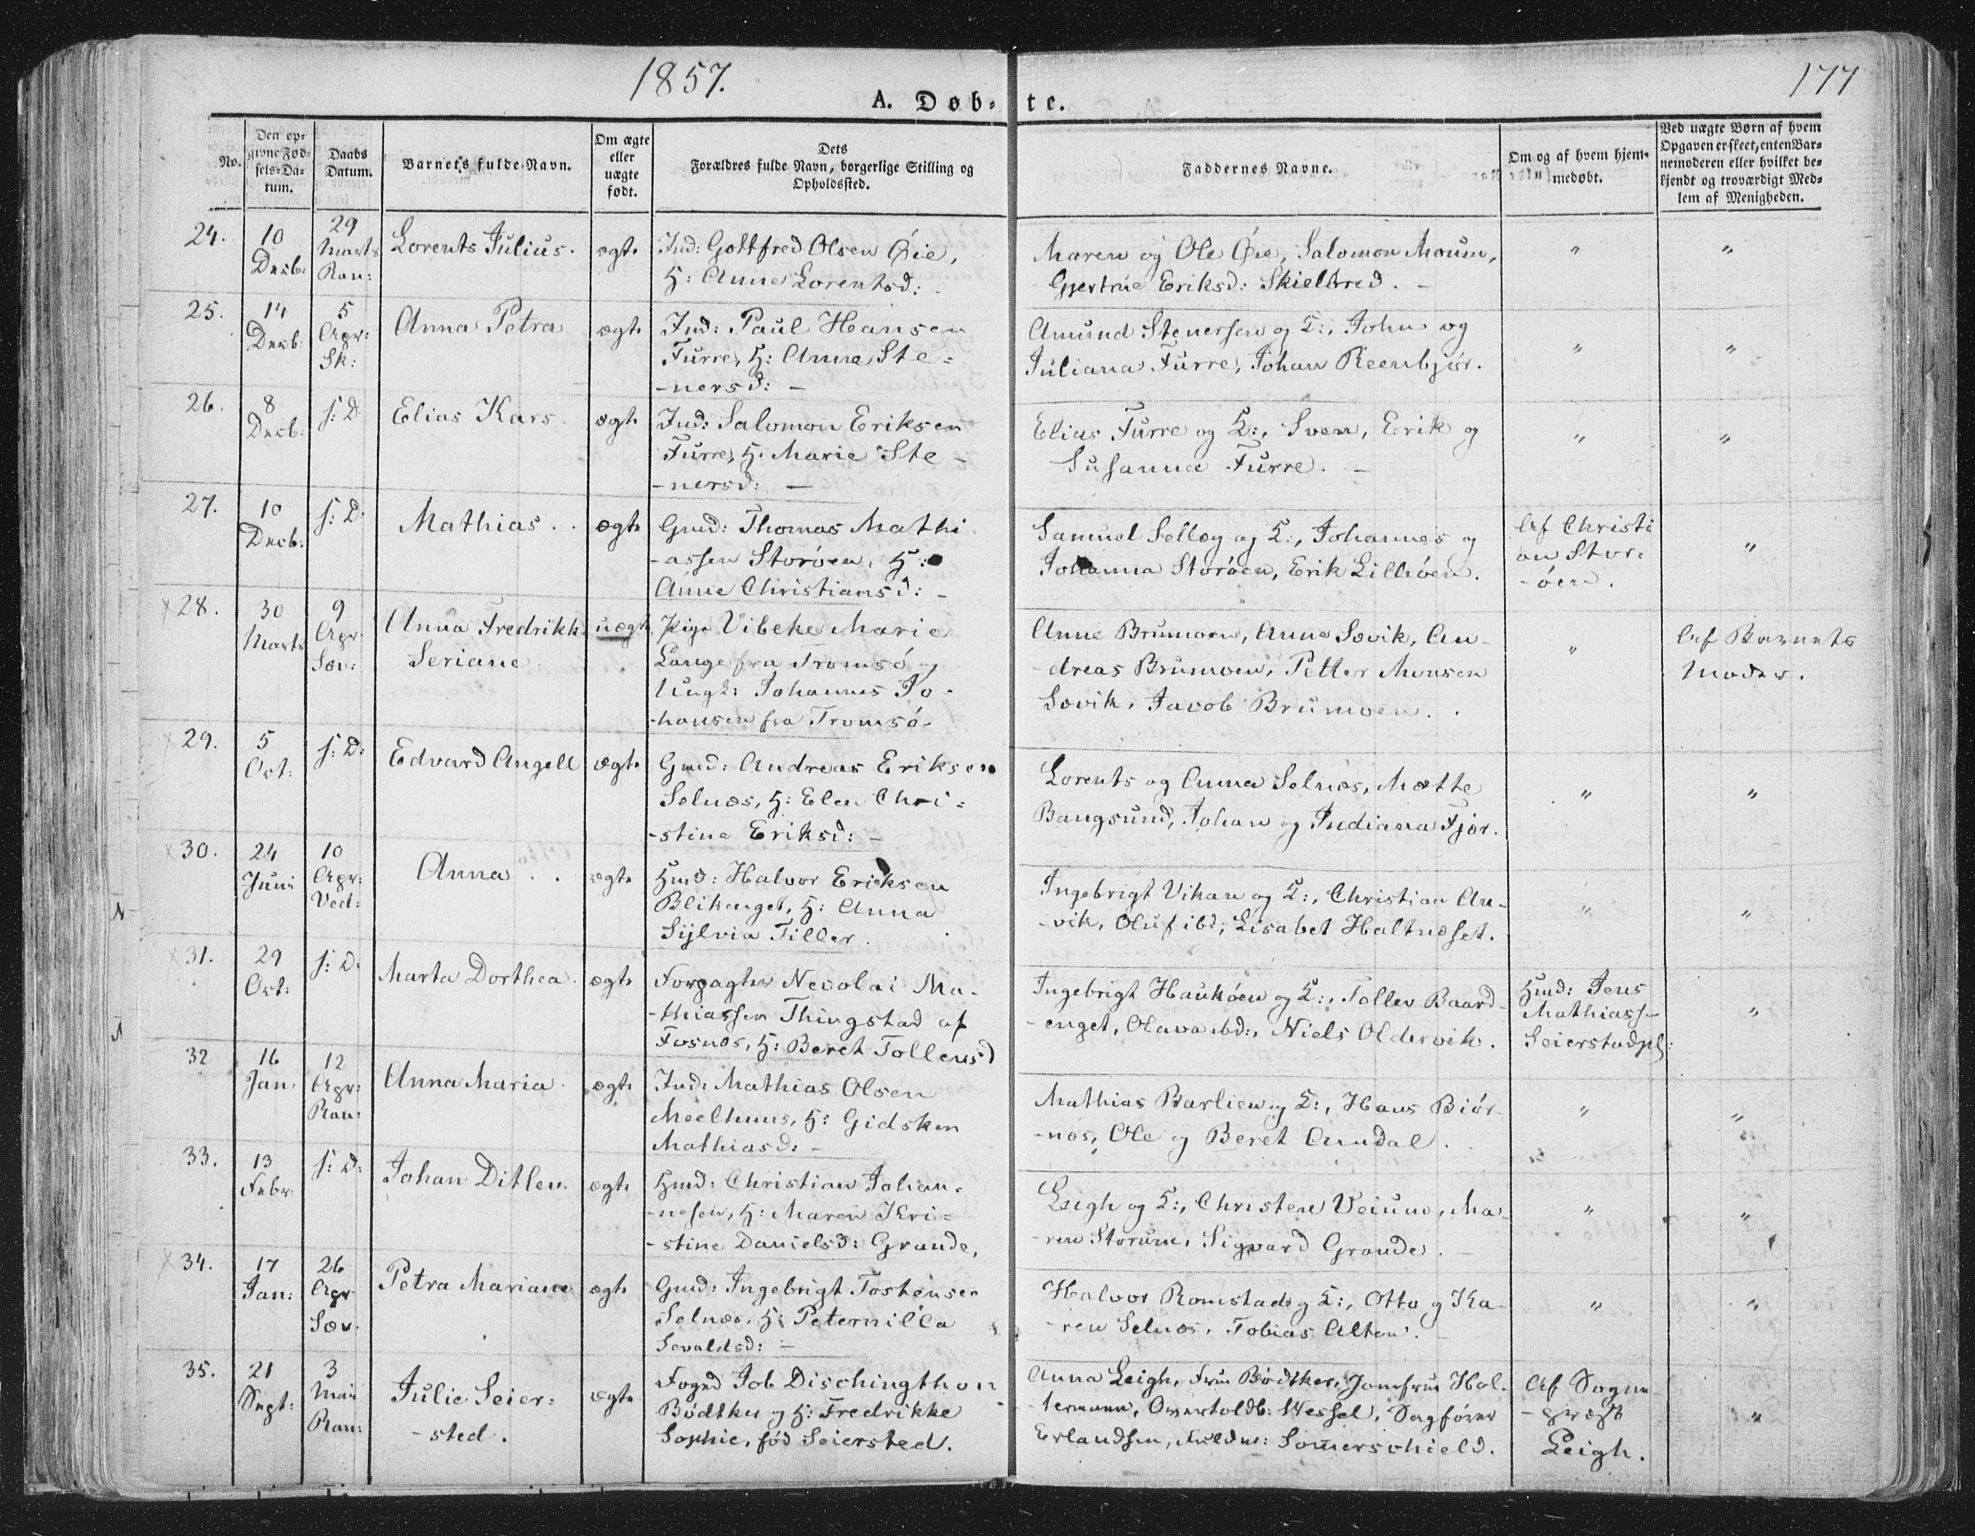 1857.
177
A. Døb-te.
No.
Den op-
givne Fød-
sels-Da-
tum.
Daabs
Datum.
Barnets fulde Navn.
Om ægte
eller
uægte
født.
Dets
Forældres fulde Navn, borgerlige Stilling og
Opholdssted.
Faddernes Navne.
Om og af hvem hjem-
medøbt.
Ved uægte Børn af hvem
Opgaven er skeet, enten Bar-
nemoderen eller hvilket be-
kjendt og troværdigt Med-
lem af Menigheden.
24.
10
Decb:
29
Marts
Ran:
Lorents Julius.
ægte
Ind: Gottfred Olsen Øie,
H: Anne Lorentsd: -
Maren og Ole Øie, Salomon Moum,
Gjertrue Eriksd: Skielbred. -
"
"
25.
14
Decb:
5
Apr:
Sk:
Anna Petra
ægte
Ind: Paul Hansen
Furre, H: Anne Ste-
-nersd: -
Amund Stenersen og K:, John og
Juliana Furre, Johan Reenbjør.
"
"
26.
8
Decb:
s: D
Elias Kars.
ægte
Ind: Salomon Eriksen
Furre, H: Marie Ste-
-nersd: -
Elias Furre og K:, Sven, Erik og
Susanna Furre. -
"
"
27.
10
Decb:
s: D:
Mathias.
ægte
Gmd: Thomas Mathi
-assen Storøen, H:
Anne Christiansd: -
Samuel Selløg og K:, Johannes og
Johanna Storøen, Erik Lilleøen.
Af Christi
an Stor-
-øen.
"
x 28.
30
Marts
9
Apr:
Sæv:
Anna Fredrikke
Seriane.
uægte
Pige Vibeke Marie
Lange fra Tromsø og
Ungk: Johannes Jo-
-hansen fra Tromsø.
Anne Brumoen, Anne Søvik, An-
-dreas Brumoen, Petter Monsen
Søvik, Jacob Brumoen.
"
Af Barnets
Moder.
x 29.
5
Oct:
s: D:
Edvard Angell
ægte
Gmd: Andreas Eriksen
Selnæs, H: Elen Chri-
-stine Eriksd: -
Lorents og Anna Selnæs, Mætte
Bangsund, Johan og Indiana Fjør.
"
"
x 30.
24
Juni
10
Apr:
Ved:
Anna
ægte
Hmd: Halvor Eriksen
Blikenget, H: Anna
Sylvia Tiller.
Ingebrigt Vikan og K:, Christian An-
-vik, Oluf ibd; Lisabet Haltnæset.
"
"
x 31.
29
Oct:
s: D:
Marta Dorthea.
ægte
Forpagter Necolai Ma-
-thiassen Thingstad af
Fosnæs, H: Beret Tollevsd
Ingebrigt Haukøen og K:, Tollev Baard-
-enget, Olava ibd:, Niels Oldervik.
Hmd: Jens
Mathiass-
Seierstadpl:
"
32
16
Jan:
12
Apr:
Ran:
Anna Maria.
ægte
Ind: Mathias Olsen
Meelhuus, H: Gidsken
Mathiasd: -
Mathias Barlien og K:, Hans Biør-
-nos, Ole og Beret Amdal.
"
"
33.
13
Febr
s: D:
Johan Ditlev.
ægte
Hmd: Christian Johan-
-nesen, H: Maren Kri-
-stine Danielsd: Grande,
Leigh og K:, Christen Veium, Ma-
-ren Storum, Sigvard Grande.
"
"
x 34.
17
Jan:
26
Apr
Sæv.
Petra Mariane
ægte
Gmd: Ingebrigt Tostensen
Selnæs, H: Peternilla
Sevaldsd: -
Halvor Romstad og K:, Otto og Ka-
-ren Selnæs, Tobias Alten.
"
"
35.
21
Sept:
3
Mai
Ran:
Julie Seier-
-sted.
ægte
Foged Job Dischingthon
Bødtker og H: Fredrikke
Sophie, fød Seiersted.
Anna Leigh, Fru Bødtker, Jomfrue Hol-
-termann, Overtoldb: Wessel, Sagfører
Erlandsen, Fuldm: Somerschield.
Af Sogne
-præst
Leigh.
"